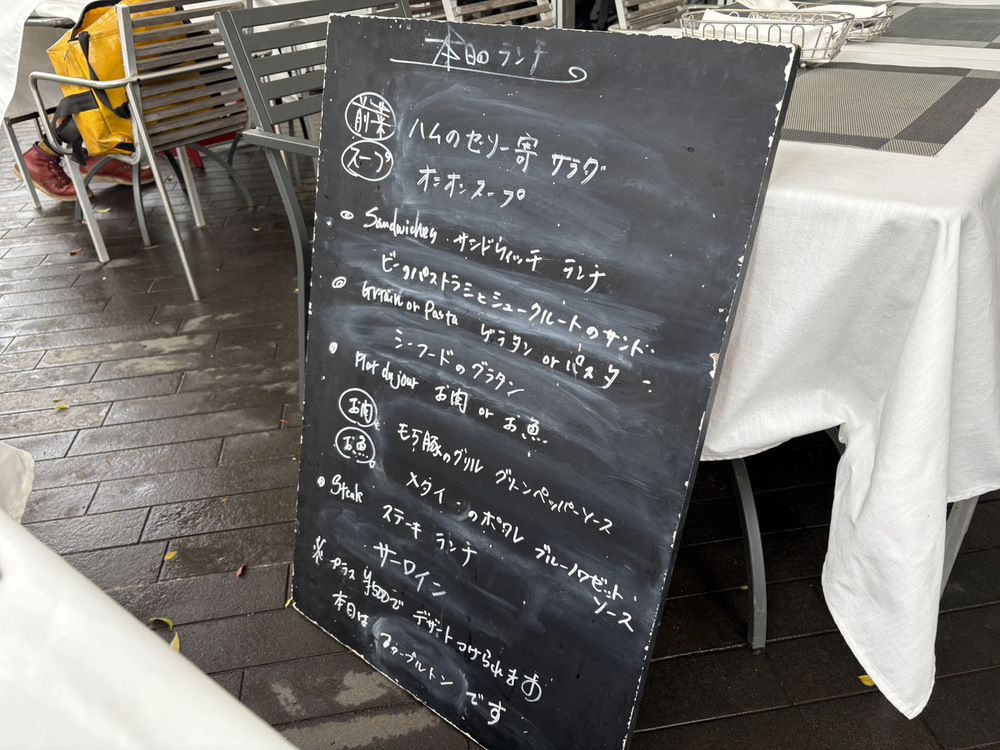 本日のランチ
前菜 ハムのゼリー寄 サラダ
スープ オニオンスープ
Sandwiches サンドウィッチ ランチ
ビーフパストラミとシュークルートのサンド
Gratin or Pasta グラタン or パスタ
シーフードのグラタン
Plat du jour お肉 or お魚
お肉 もち豚のグリル グリーンペッパーソース
お魚 メダイのポワレ ブルーノワゼット
ソース
Steak ステーキ ランチ
サーロイン
※ プラス ¥500で デザートつけられます
本日は ファーブルトン です